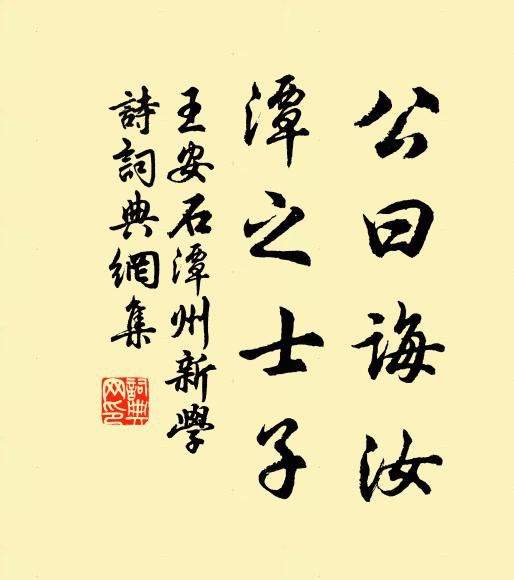 公曰誨汝
潭之士子
王安石潭州新學
詩詞典網集
詞典
网印